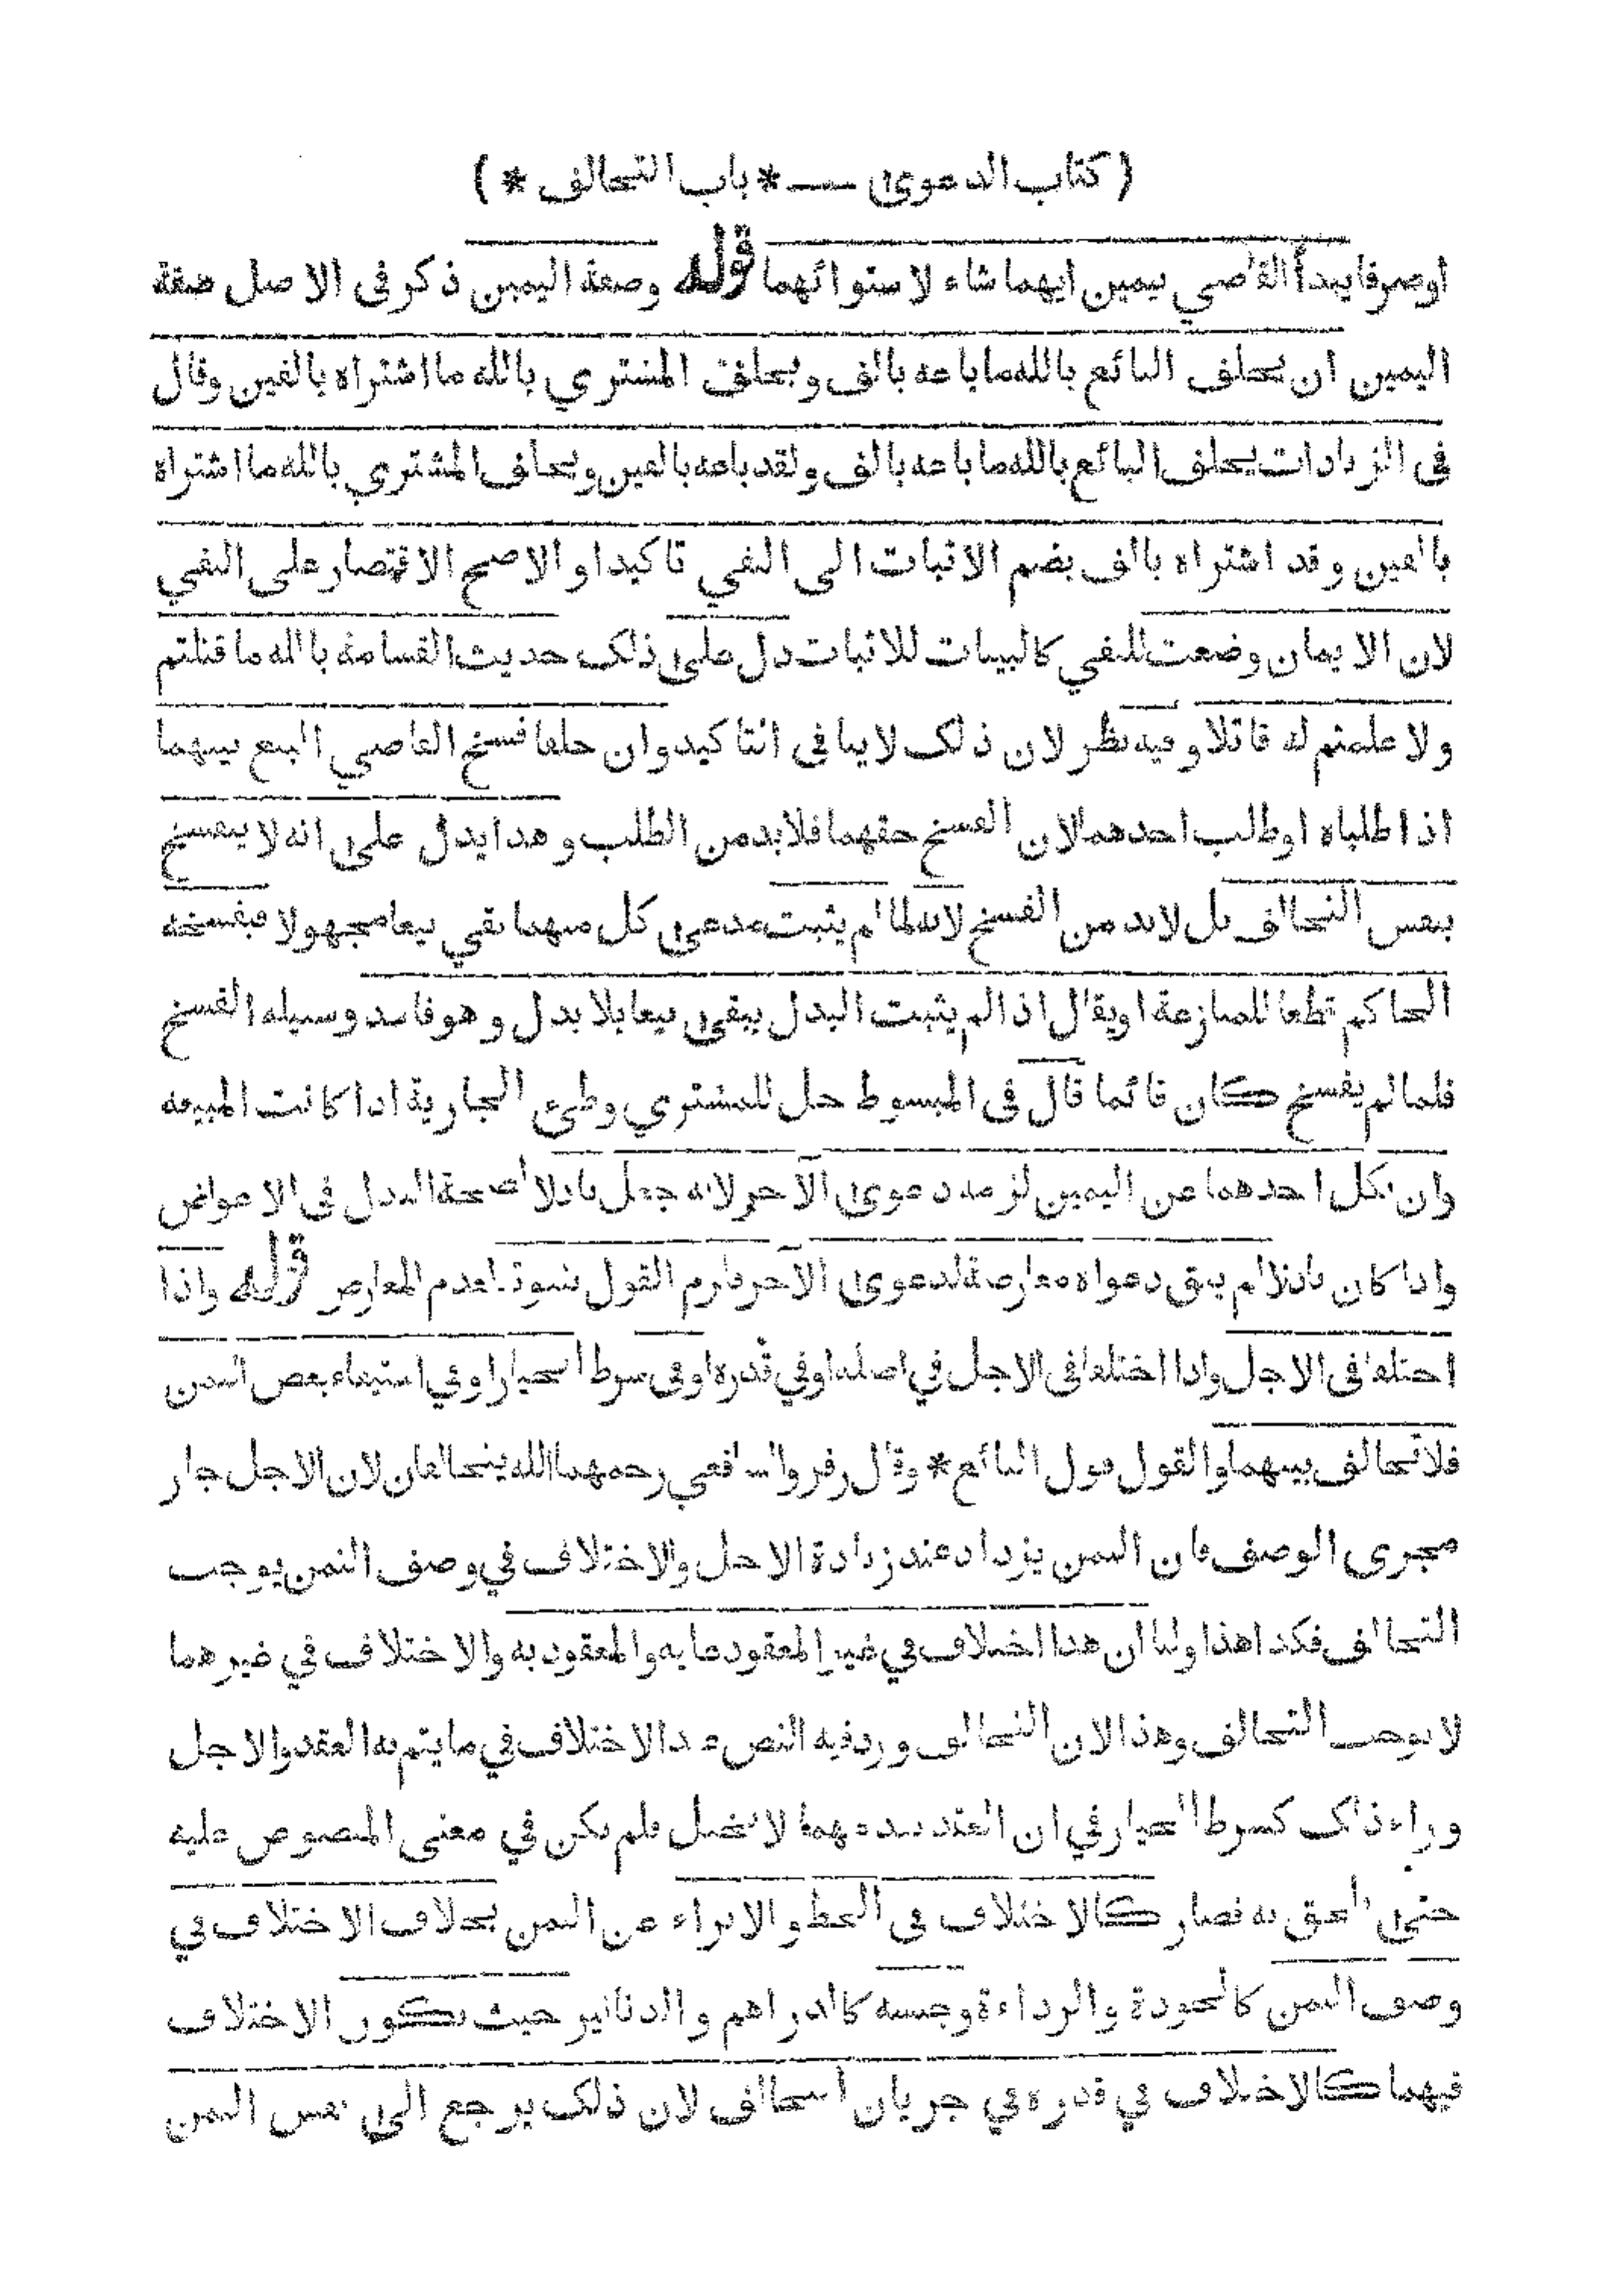 ( كتاب الدعوى — * باب التحالف * )
اوصرفا يبدأ القاضي بيمين ايهما شاء لاستوائهما قوله وصفة اليمين ذكر في الاصل صفة
اليمين ان يحلف البائع بالله ما باعه بالف ويحلف المشتري بالله ما اشتراه بالفين وقال
في الزيادات يحلف البائع بالله ما باعه بالف ولقد باعه بالفين ويحلف المشتري بالله ما اشتراه
بالفين وقد اشتراه بالف يضم الاثبات الى النفي تاكيدا والاصح الاقتصار على النفي
لان الايمان وضعت للنفي كالبينات للاثبات دل على ذلك حديث القسامة بالله ما قتلتم
ولا علمتم له قاتلا وفيه نظر لان ذلك لا ينافي التاكيد وان حلفا فسخ القاضي البيع بينهما
اذا طلباه او طلب احدهما لان الفسخ حقهما فلا بد من الطلب وهذا يدل على انه لا ينفسخ
بنفس التحالف بل لا بد من الفسخ لانه لما لم يثبت مدعى كل منهما بقي بيعا مجهولا فيفسخه
الحاكم قطعا للمنازعة او يقال اذا لم يثبت البدل يبقى بيعا بلا بدل وهو فاسد وسبيله الفسخ
فلما لم يفسخ كان قائما قال في المبسوط حل للمشتري وطئ الجارية اذا كانت المبيعه
وان نكل احدهما عن اليمين لزمه دعوى الآخر لانه جعل باذلا لصحة البذل في الاعواض
واذا كان باذلا لم يبق دعواه معارضة لدعوى الآخر فلزم القول بثبوته لعدم المعارض قوله واذا
اختلفا في الاجل واذا اختلفا في الاجل في اصله او في قدره او في شرط الخيار او في استيفاء بعض الثمن
فلا تحالف بينهما والقول قول البائع * وقال زفر والشافعي رحمهما الله يتحالفان لان الاجل جار
مجرى الوصف فان الثمن يزداد عند زيادة الاجل والاختلاف في وصف الثمن يوجب
التحالف فكذا هذا ولنا ان هذا اختلاف في غير المعقود عليه والمعقود به والاختلاف في غيرهما
لا يوجب التحالف وهذا لان التحالف ورد فيه النص عند الاختلاف في ما يتم به العقد والاجل
وراء ذلك كشرط الخيار في ان العقد بعدمهما لا يختل فلم يكن في معنى المنصوص عليه
حتى يلحق به فصار كالاختلاف في الحط والابراء عن الثمن بخلاف الاختلاف في
وصف الثمن كالجودة والرداءة وجنسه كالدراهم والدنانير حيث يكون الاختلاف
فيهما كالاختلاف في قدره في جريان التحالف لان ذلك يرجع الى نفس الثمن